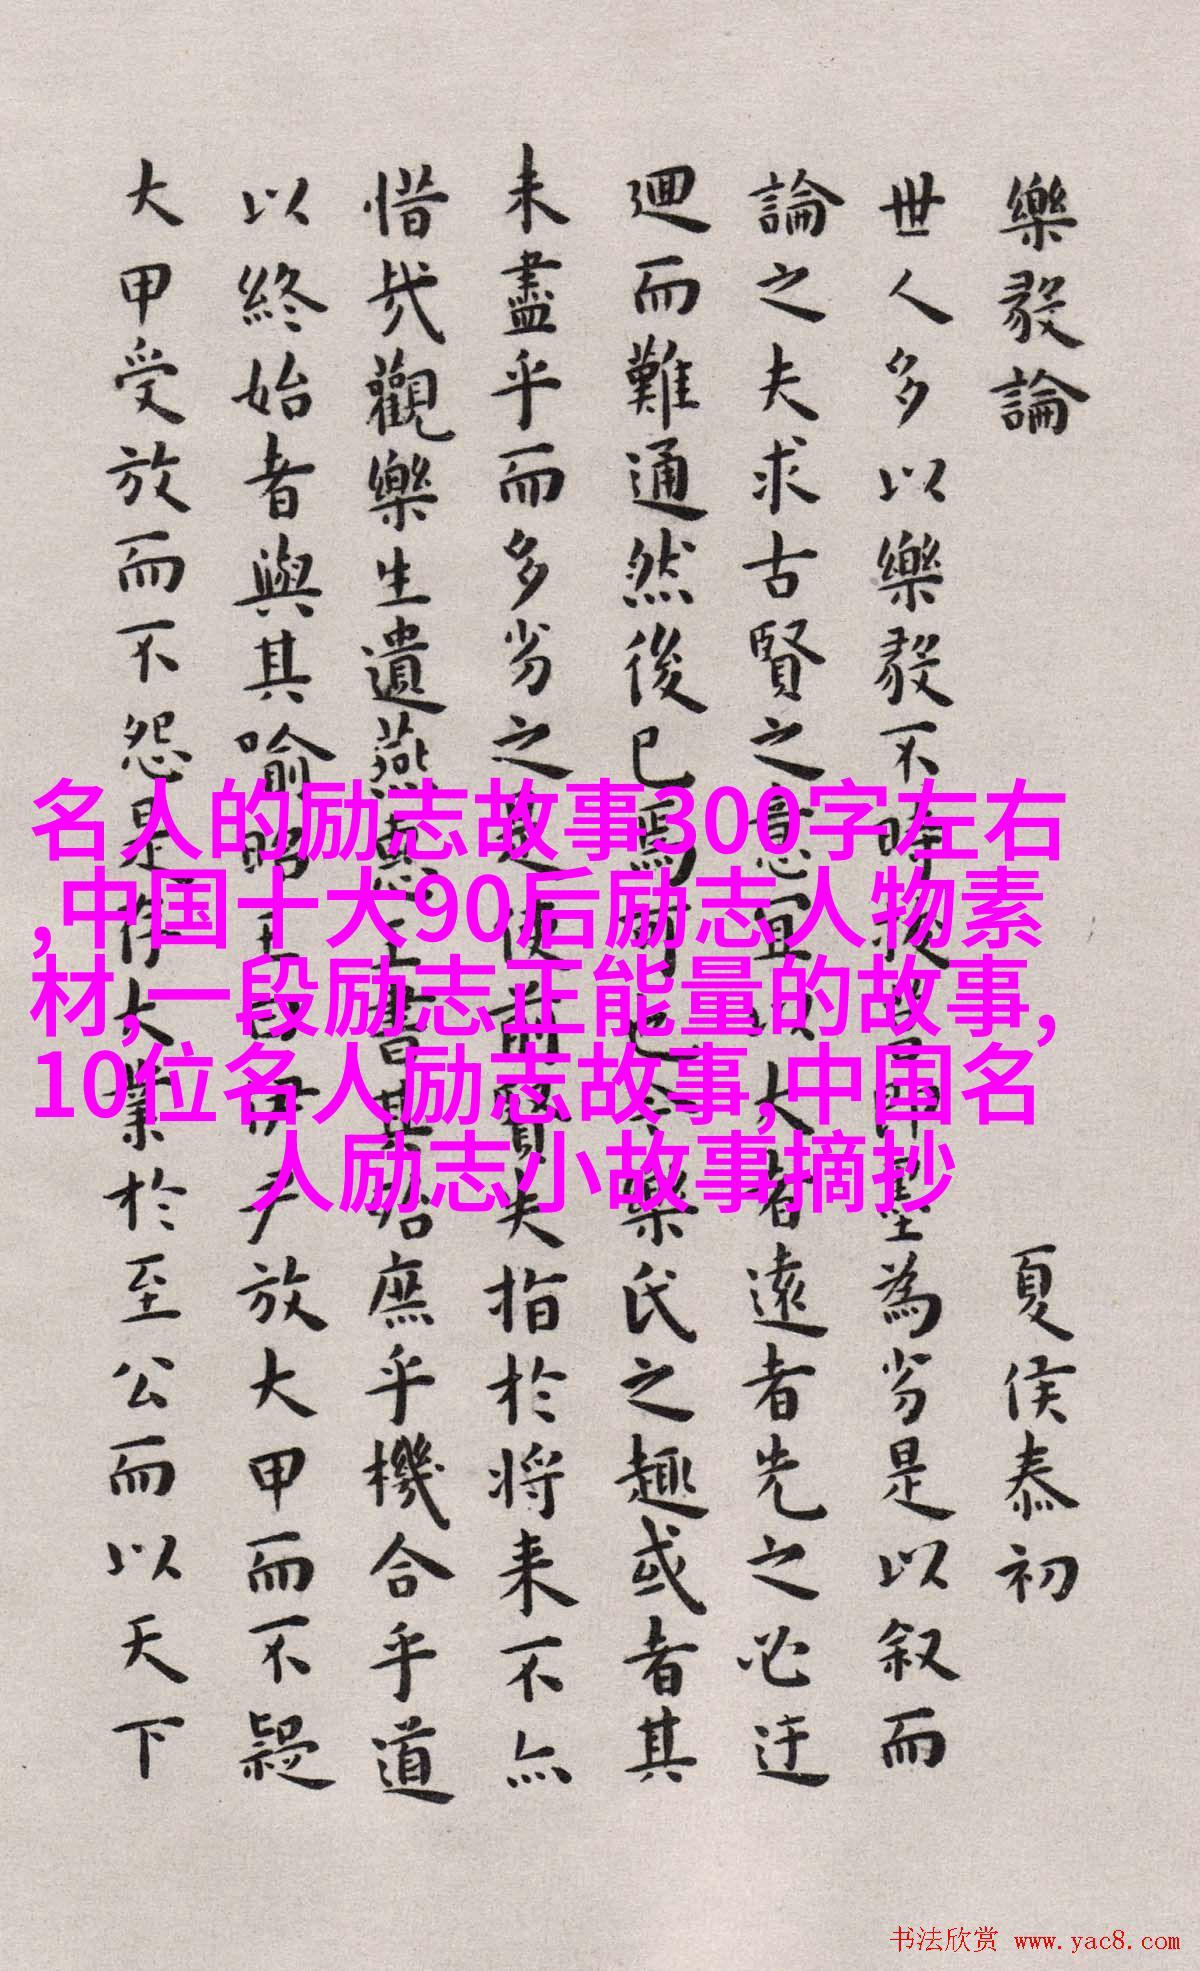 樂毅論 夏侯泰初
世人多以樂毅不時拔莒即墨為劣是以叙而
論之夫求古賢之意宜以大者遠者先之必迂
迴而難通然後已焉可也今樂氏之趣或者其
未盡乎而多劣之是使前賢失指於将来不亦
惜哉觀樂生遺燕惠王書其殆庶乎機合乎道
以終始者與其喻昭王曰伊尹放大甲而不疑
大甲受放而不怨是存大業於至公而以天下
名人的励志故事300字左右
,中国十大90后励志人物素
材,一段励志正能量的故事,
10位名人励志故事,中国名
人励志小故事摘抄
书法欣赏 www.yac8.com